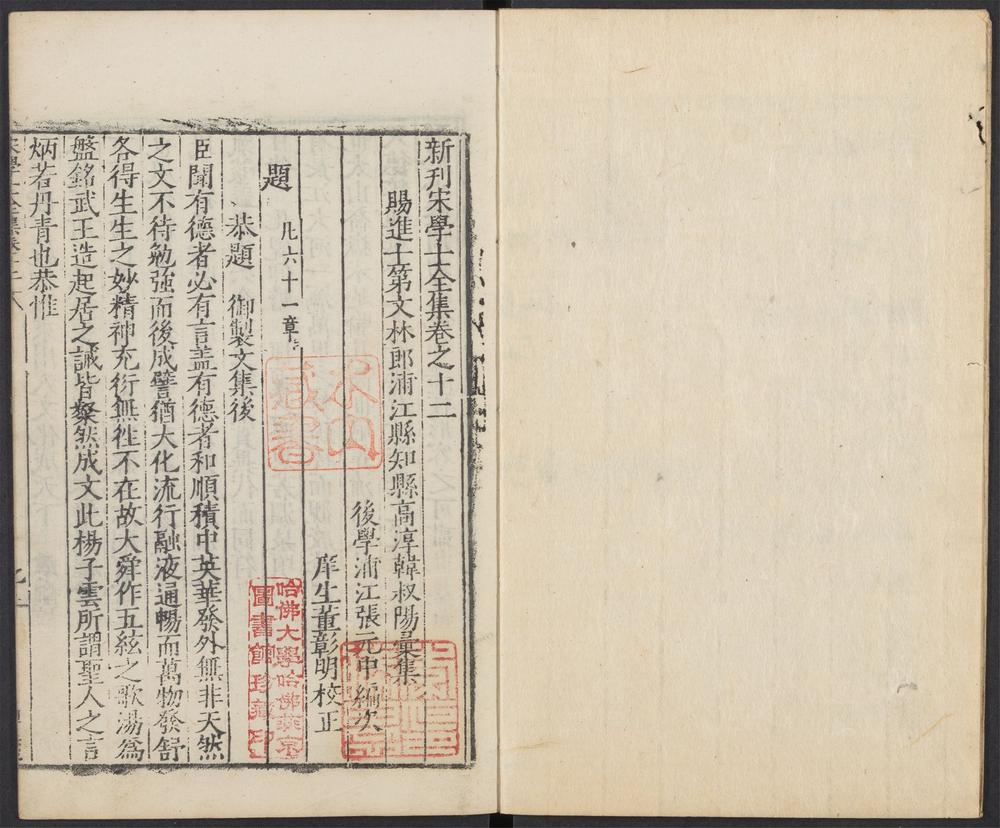 新刊宋學士全集卷之十二
賜進士第文林郎浦江縣知縣高淳韓叔陽彙集
後學浦江張元中編次
庠生董彰明校正
題
凡六十一章
恭題 御製文集後
臣聞有德者必有言盖有德者和順積中英華發外無非天然
之文不待勉強而後成譬猶大化流行融液通暢而萬物發舒
各得生生之妙精神充衍無徃不在故大舜作五絃之歌湯爲
盤銘武王造起居之誡皆粲然成文此楊子雲所謂聖人之言
炳若丹青也恭惟
哈佛大學哈佛燕京
圖書館珍藏印